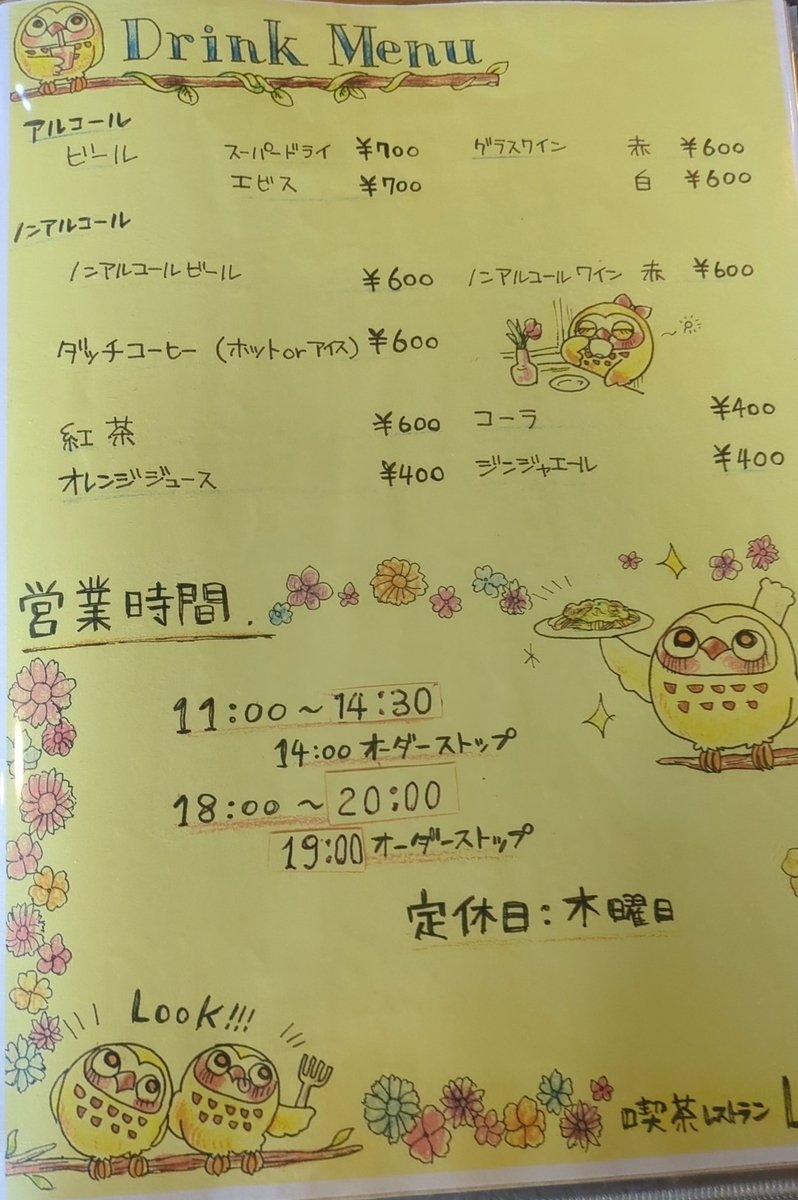 Drink Menu
アルコール
ビール スーパードライ ¥700 グラスワイン 赤 ¥600
エビス ¥700 白 ¥600
ノンアルコール
ノンアルコールビール ¥600 ノンアルコールワイン 赤 ¥600
ダッチコーヒー (ホットorアイス) ¥600
紅茶 ¥600 コーラ ¥400
オレンジジュース ¥400 ジンジャエール ¥400
営業時間.
11:00～14:30
14:00 オーダーストップ
18:00～20:00
19:00 オーダーストップ
定休日:木曜日
Look!!!
喫茶レストラン